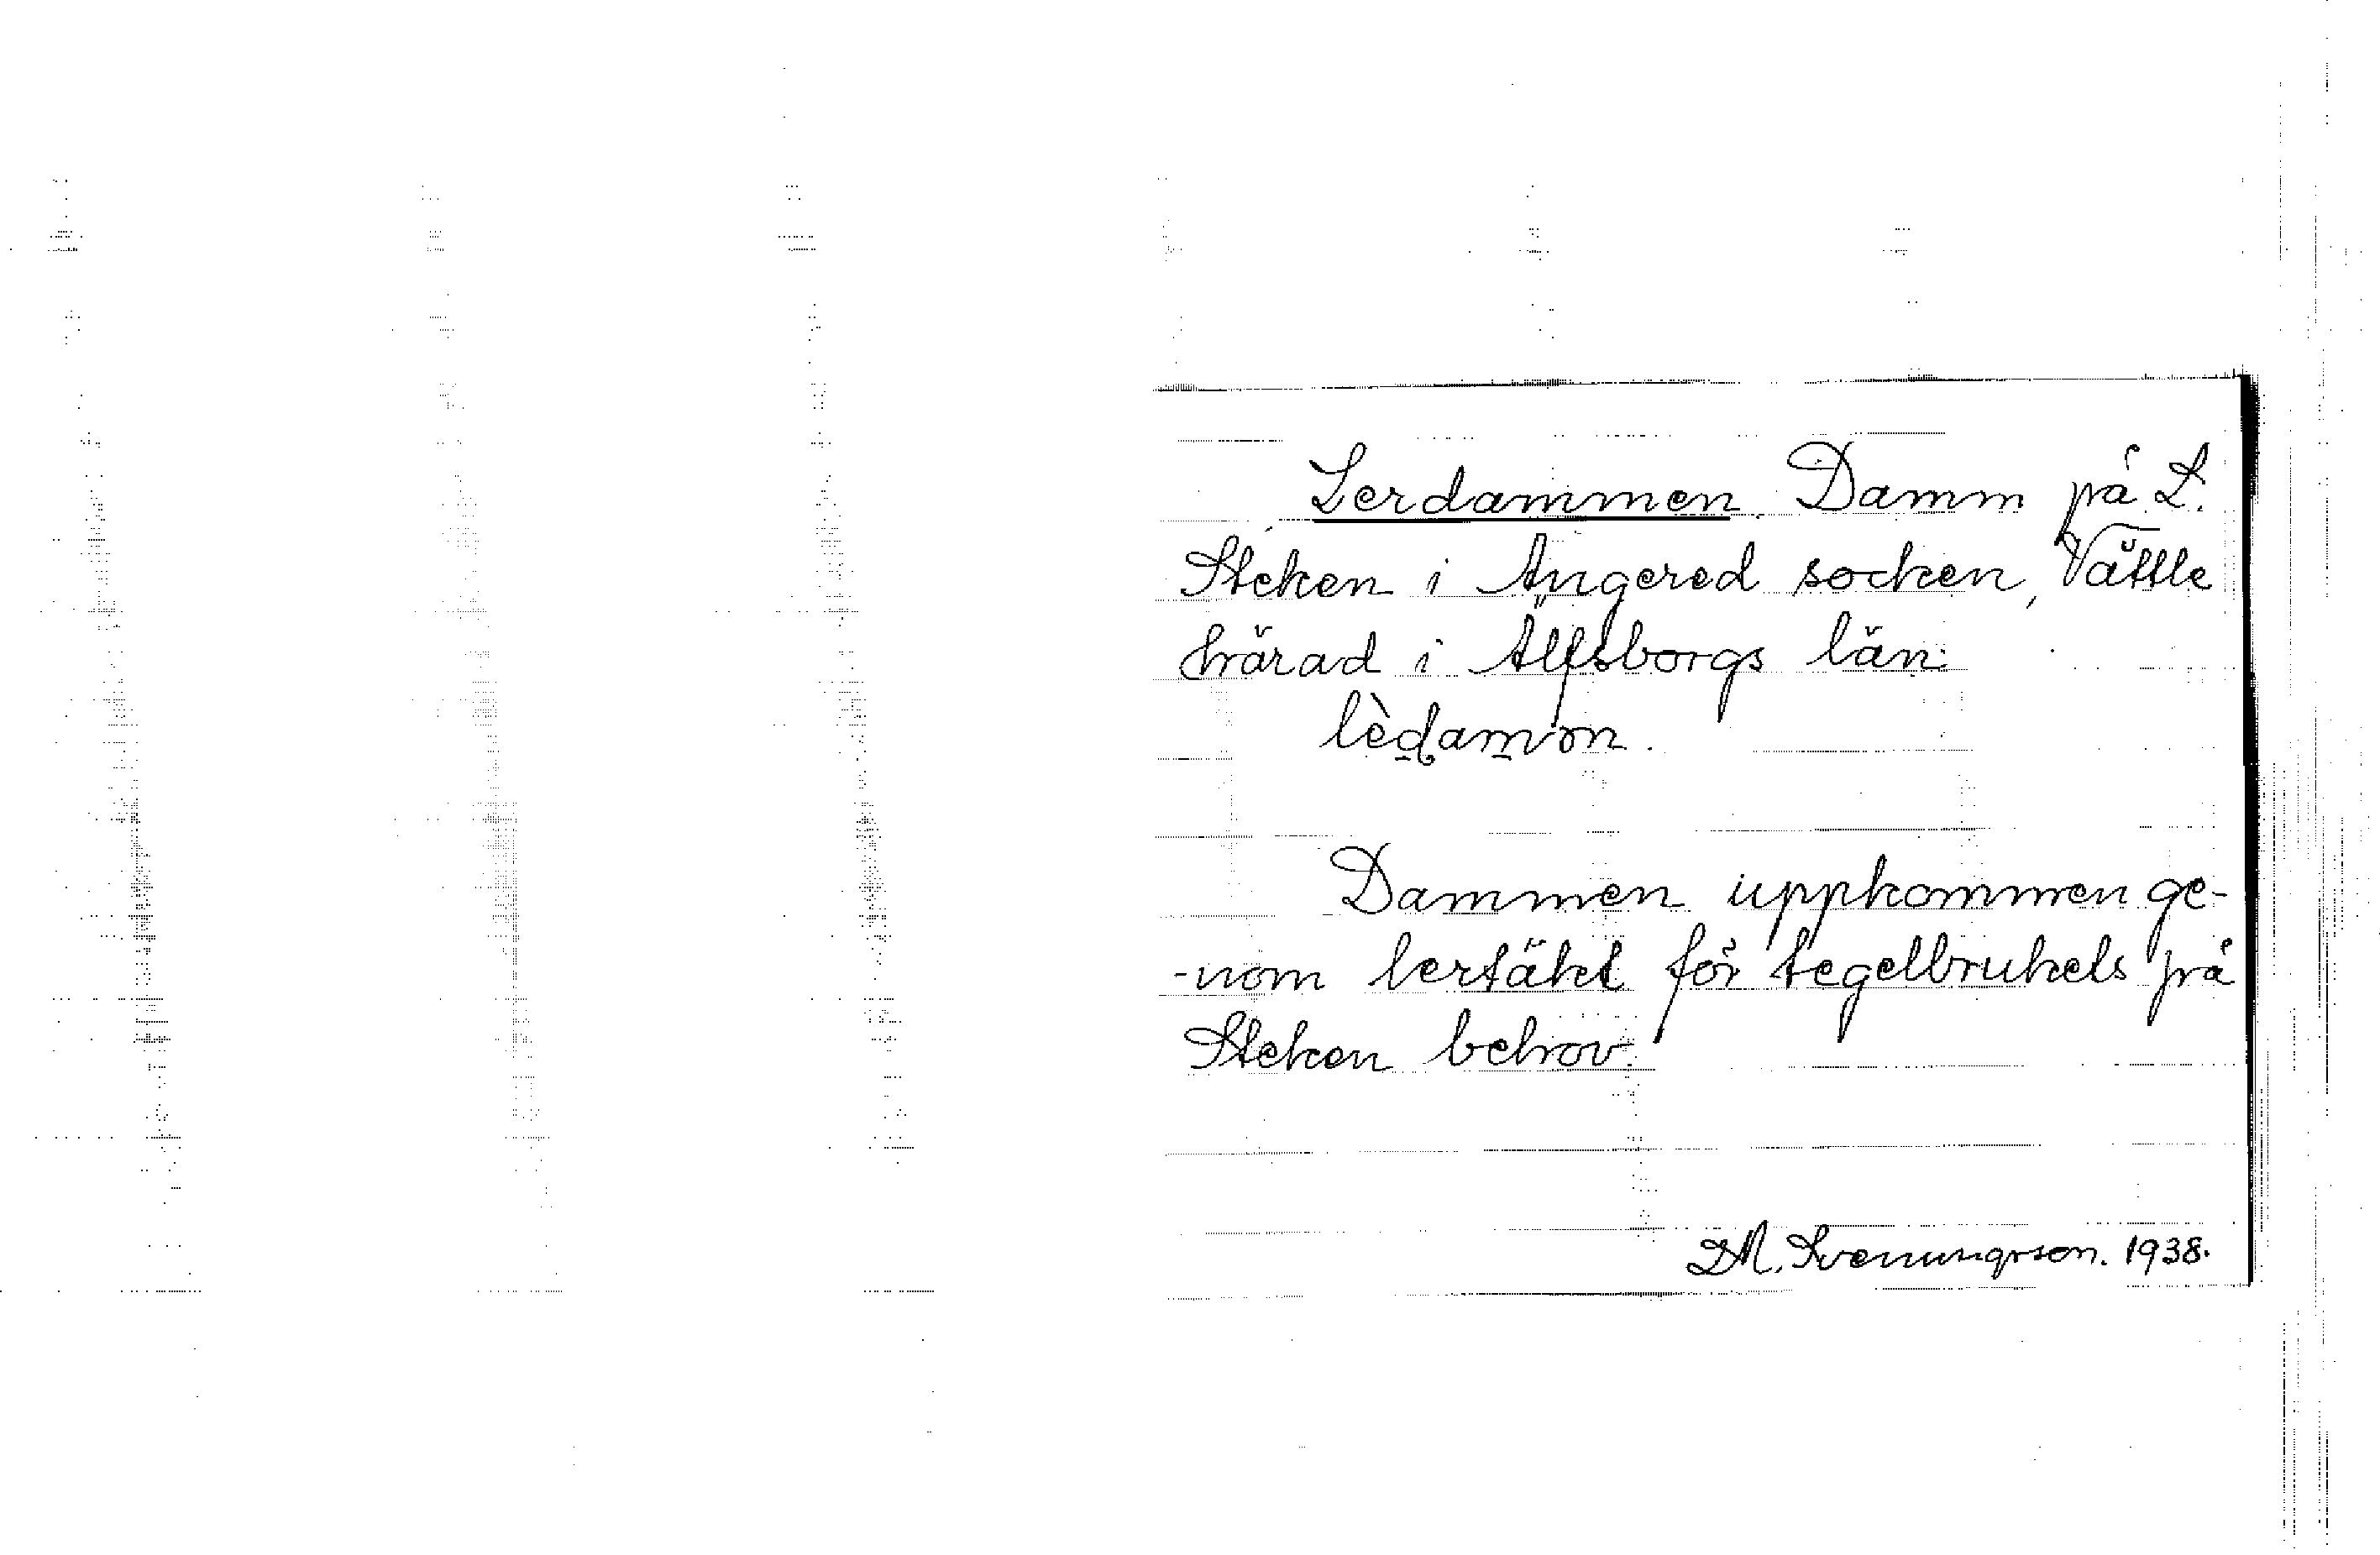 Lerdammen. Damm på L.
Steken i Angered socken, Vättle
härad i Älfsborgs län.
lèdamon.
Dammen uppkommen ge-
-nom lertäkt för tegelbrukets på
Steken behov.
D.M. Svenungsson. 1938.